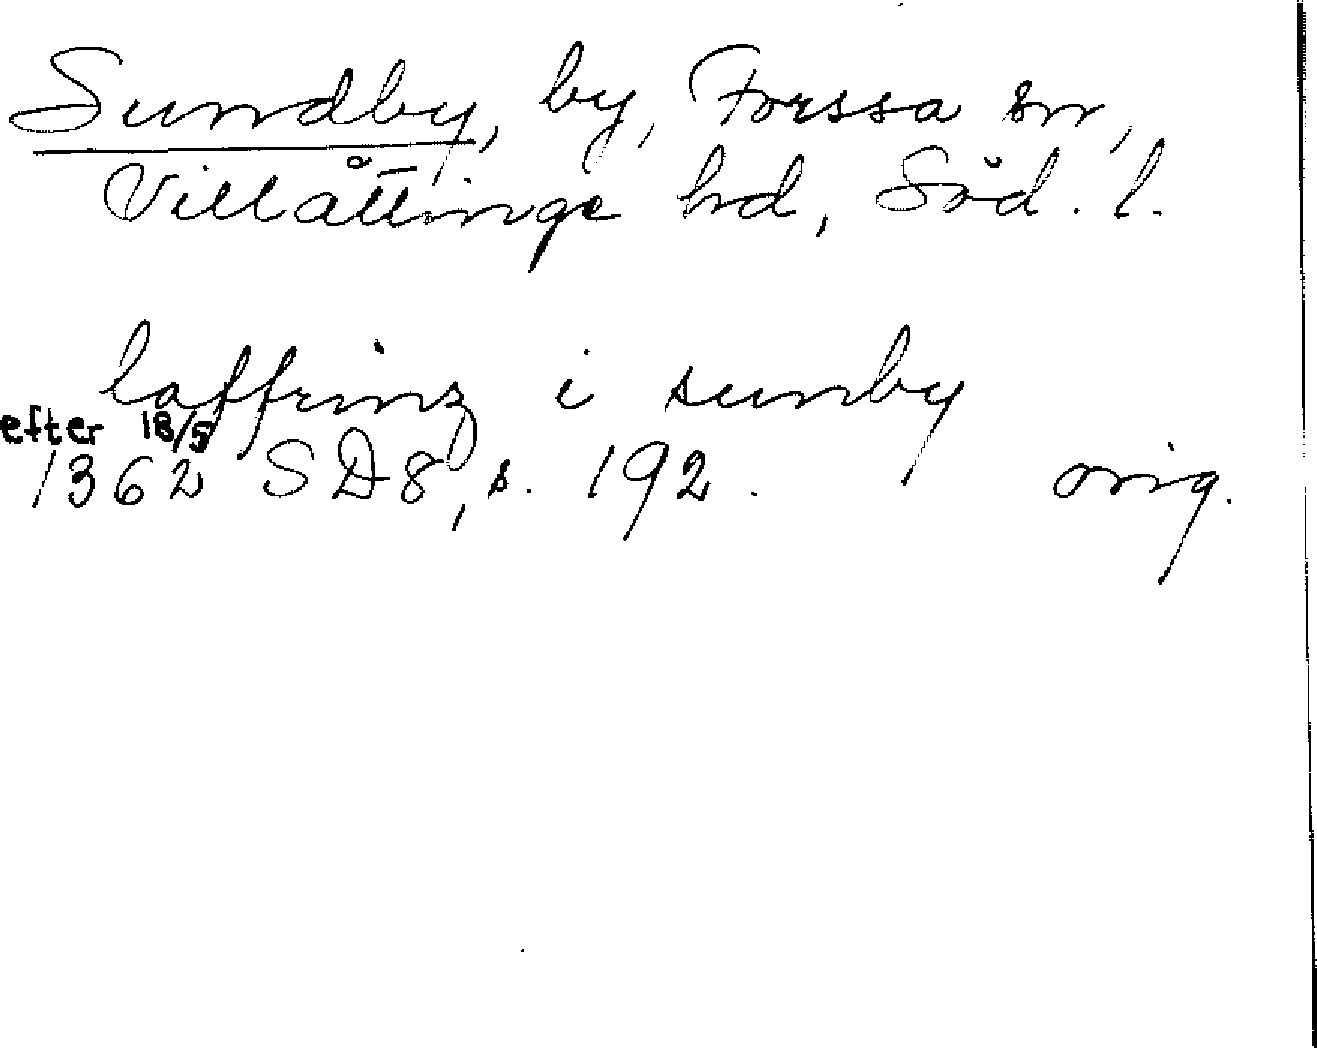 Sundby, by, Forssa sn,
Villåttinge hd, Söd. l.
laffrinz i sunby
efter 18/5
1362 SD8, s. 192. orig.